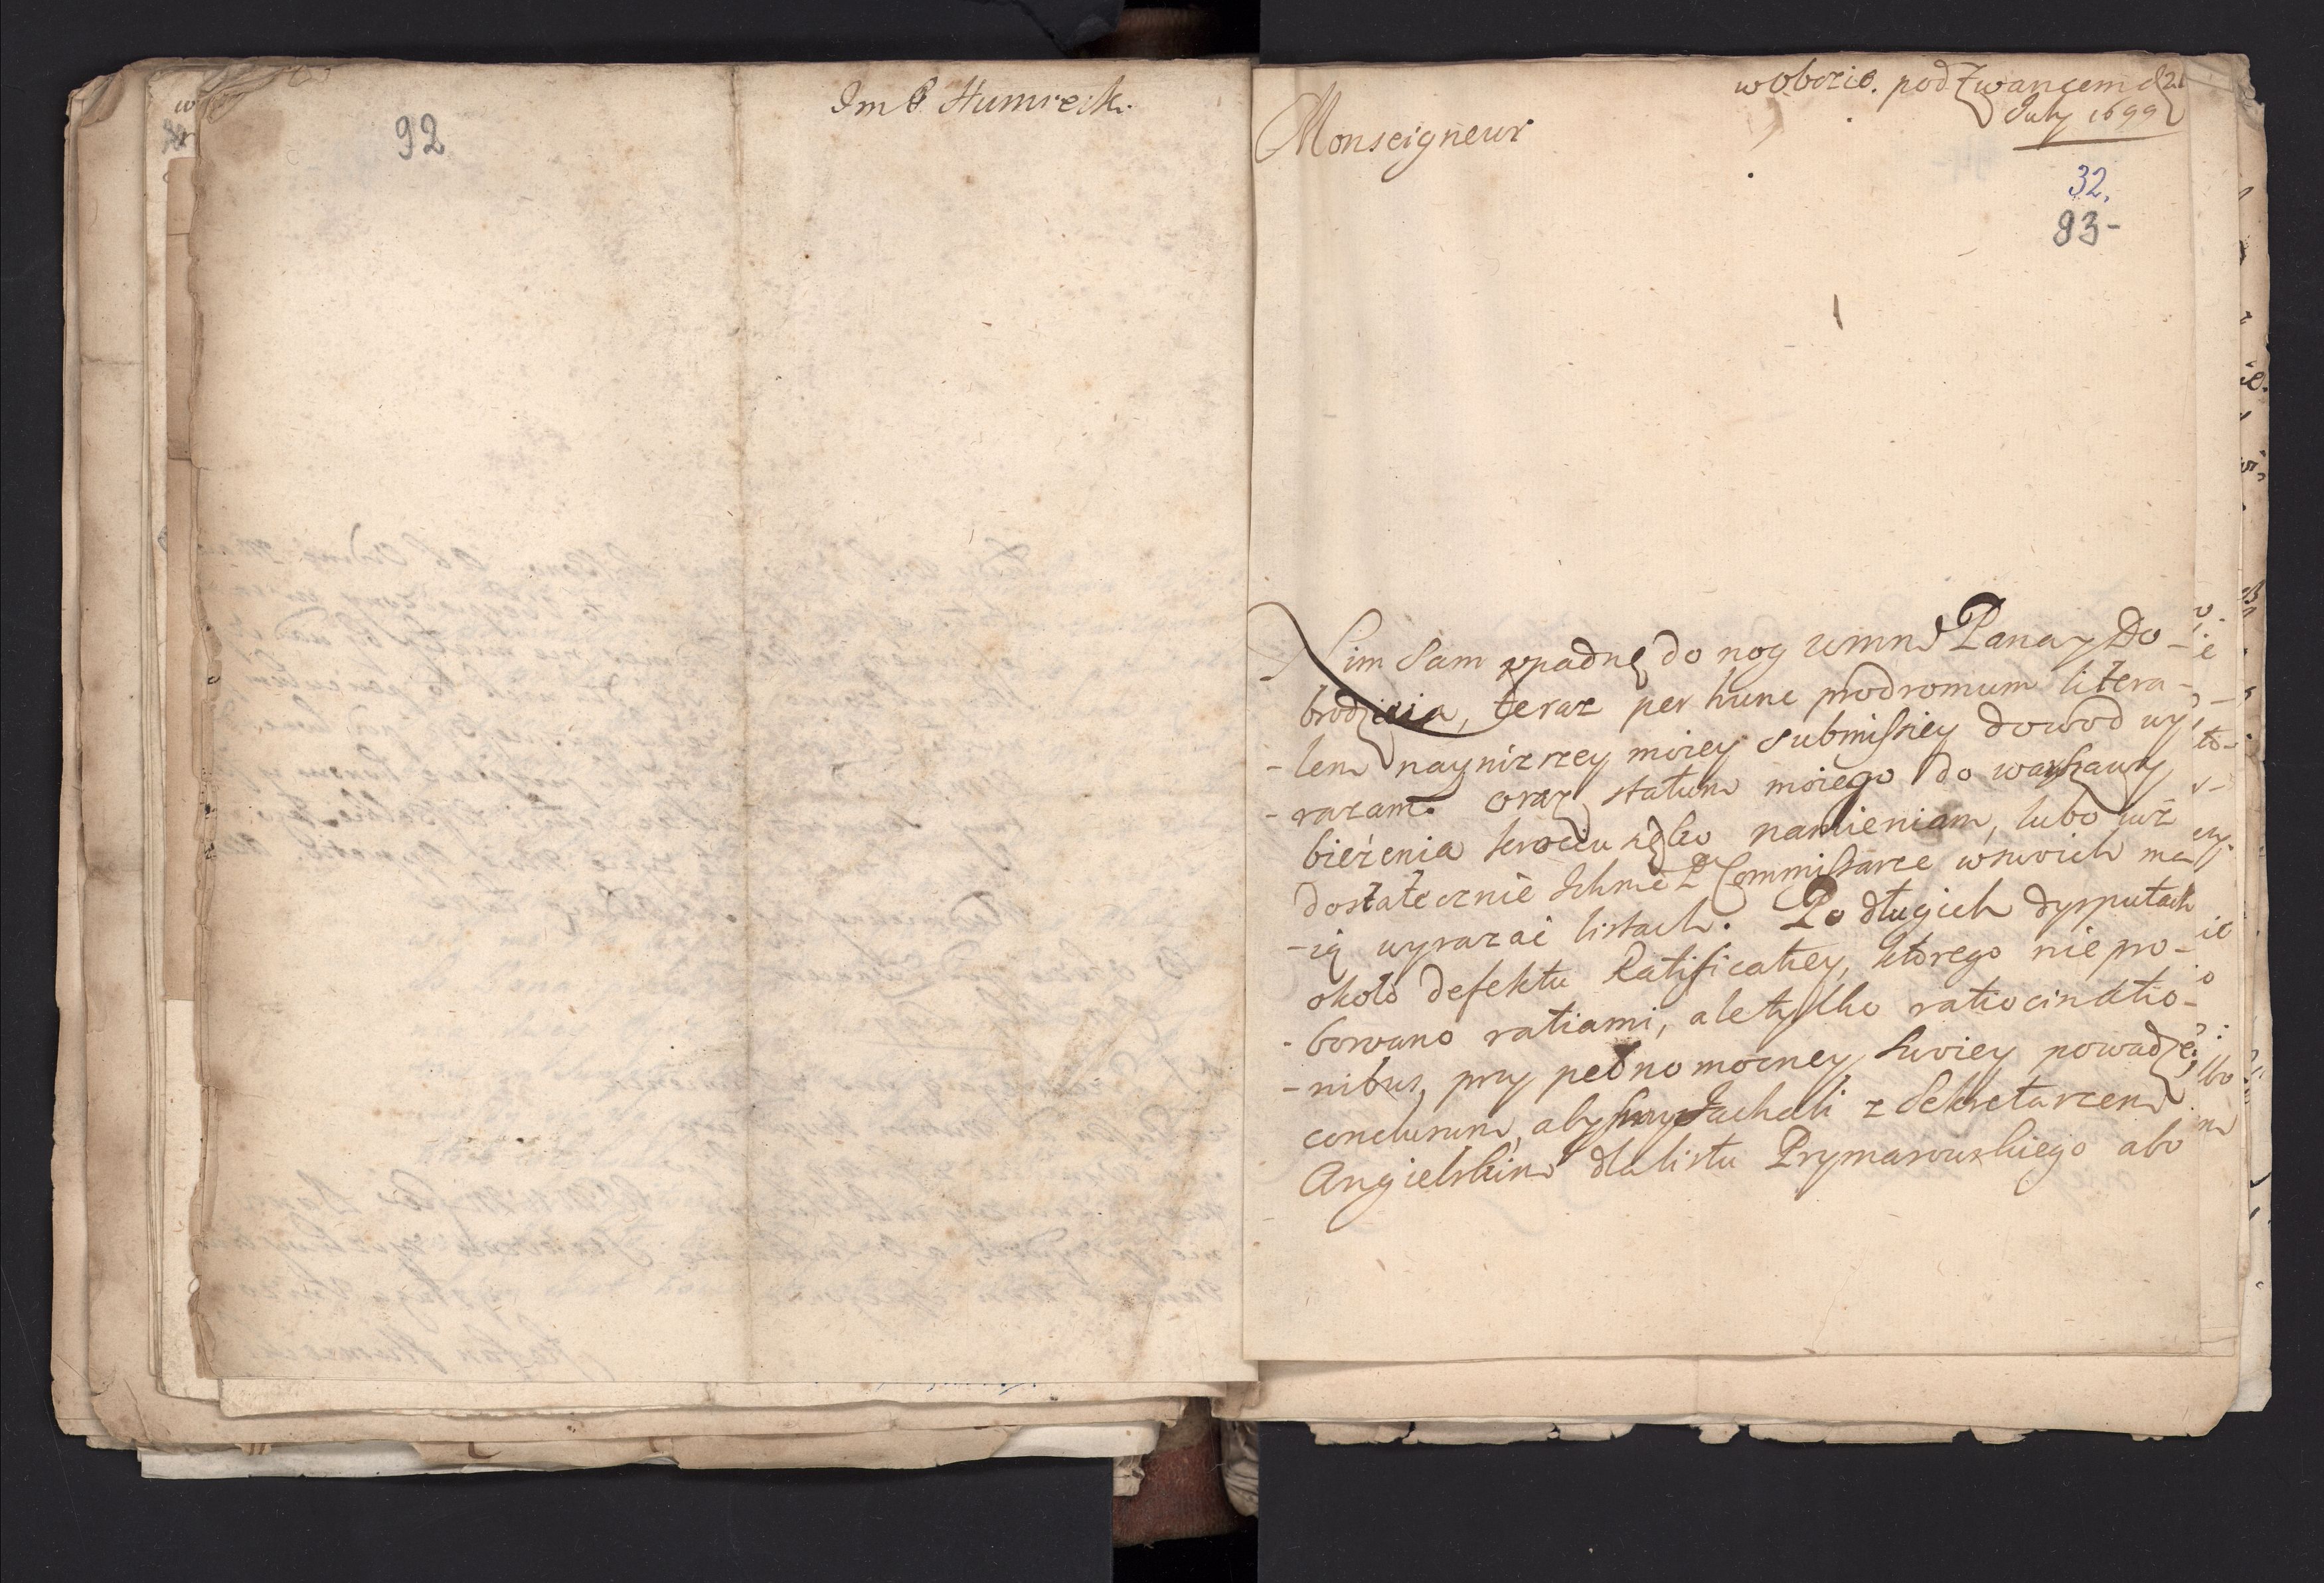 92
Im P. Humieck.
w Obozie. pod Zwancem d 21
July 1699
Monseigneur
32.
93-
Nim Sam vpadnę do nog wmm Pana y Do-
brodzieia, teraz per hunc prodromum litera-
-lem nayniżrzey moiey submissiey dowod wy
-razam. oraz statum moiego do warszawy
bieżenia krociusżko namieniam, lubo iuż
dostatecznie Ichmć PP Commissarze w swoich ma
-ią wyrazać listach. Po długich dysputach
około defektu Ratificatiey, ktorego nie pro-
-bowano ratiami, ale tylko ratiocinatio-
-nibus, przy pełnomocney swoiey powadze;
conclusum, abysmy Jachali z Sekretarzem
Angielskim dla listu Prymasowskiego abo